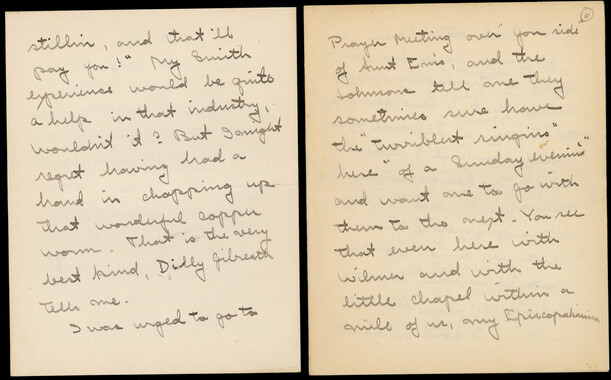 stillin', and that'll
pay you!" My Smith
experience would be quite
a help in that industry,
wouldn't it? But I might
regret having had a
hand in chopping up
that wonderful copper
worm. That is the very
best kind, Dilly Gilreath
tells me.
I was urged to go to
6
Prayer Meeting over' yon side
of Aunt Em's, and the
Johnsons tell me they
sometimes sure have
the "turriblest singins"
here "of a Sunday evenin'"
and want me to go with
them to the next. You see
that even here with
Wilmer and with the
little chapel within a
mile of us, my Episcopalianism